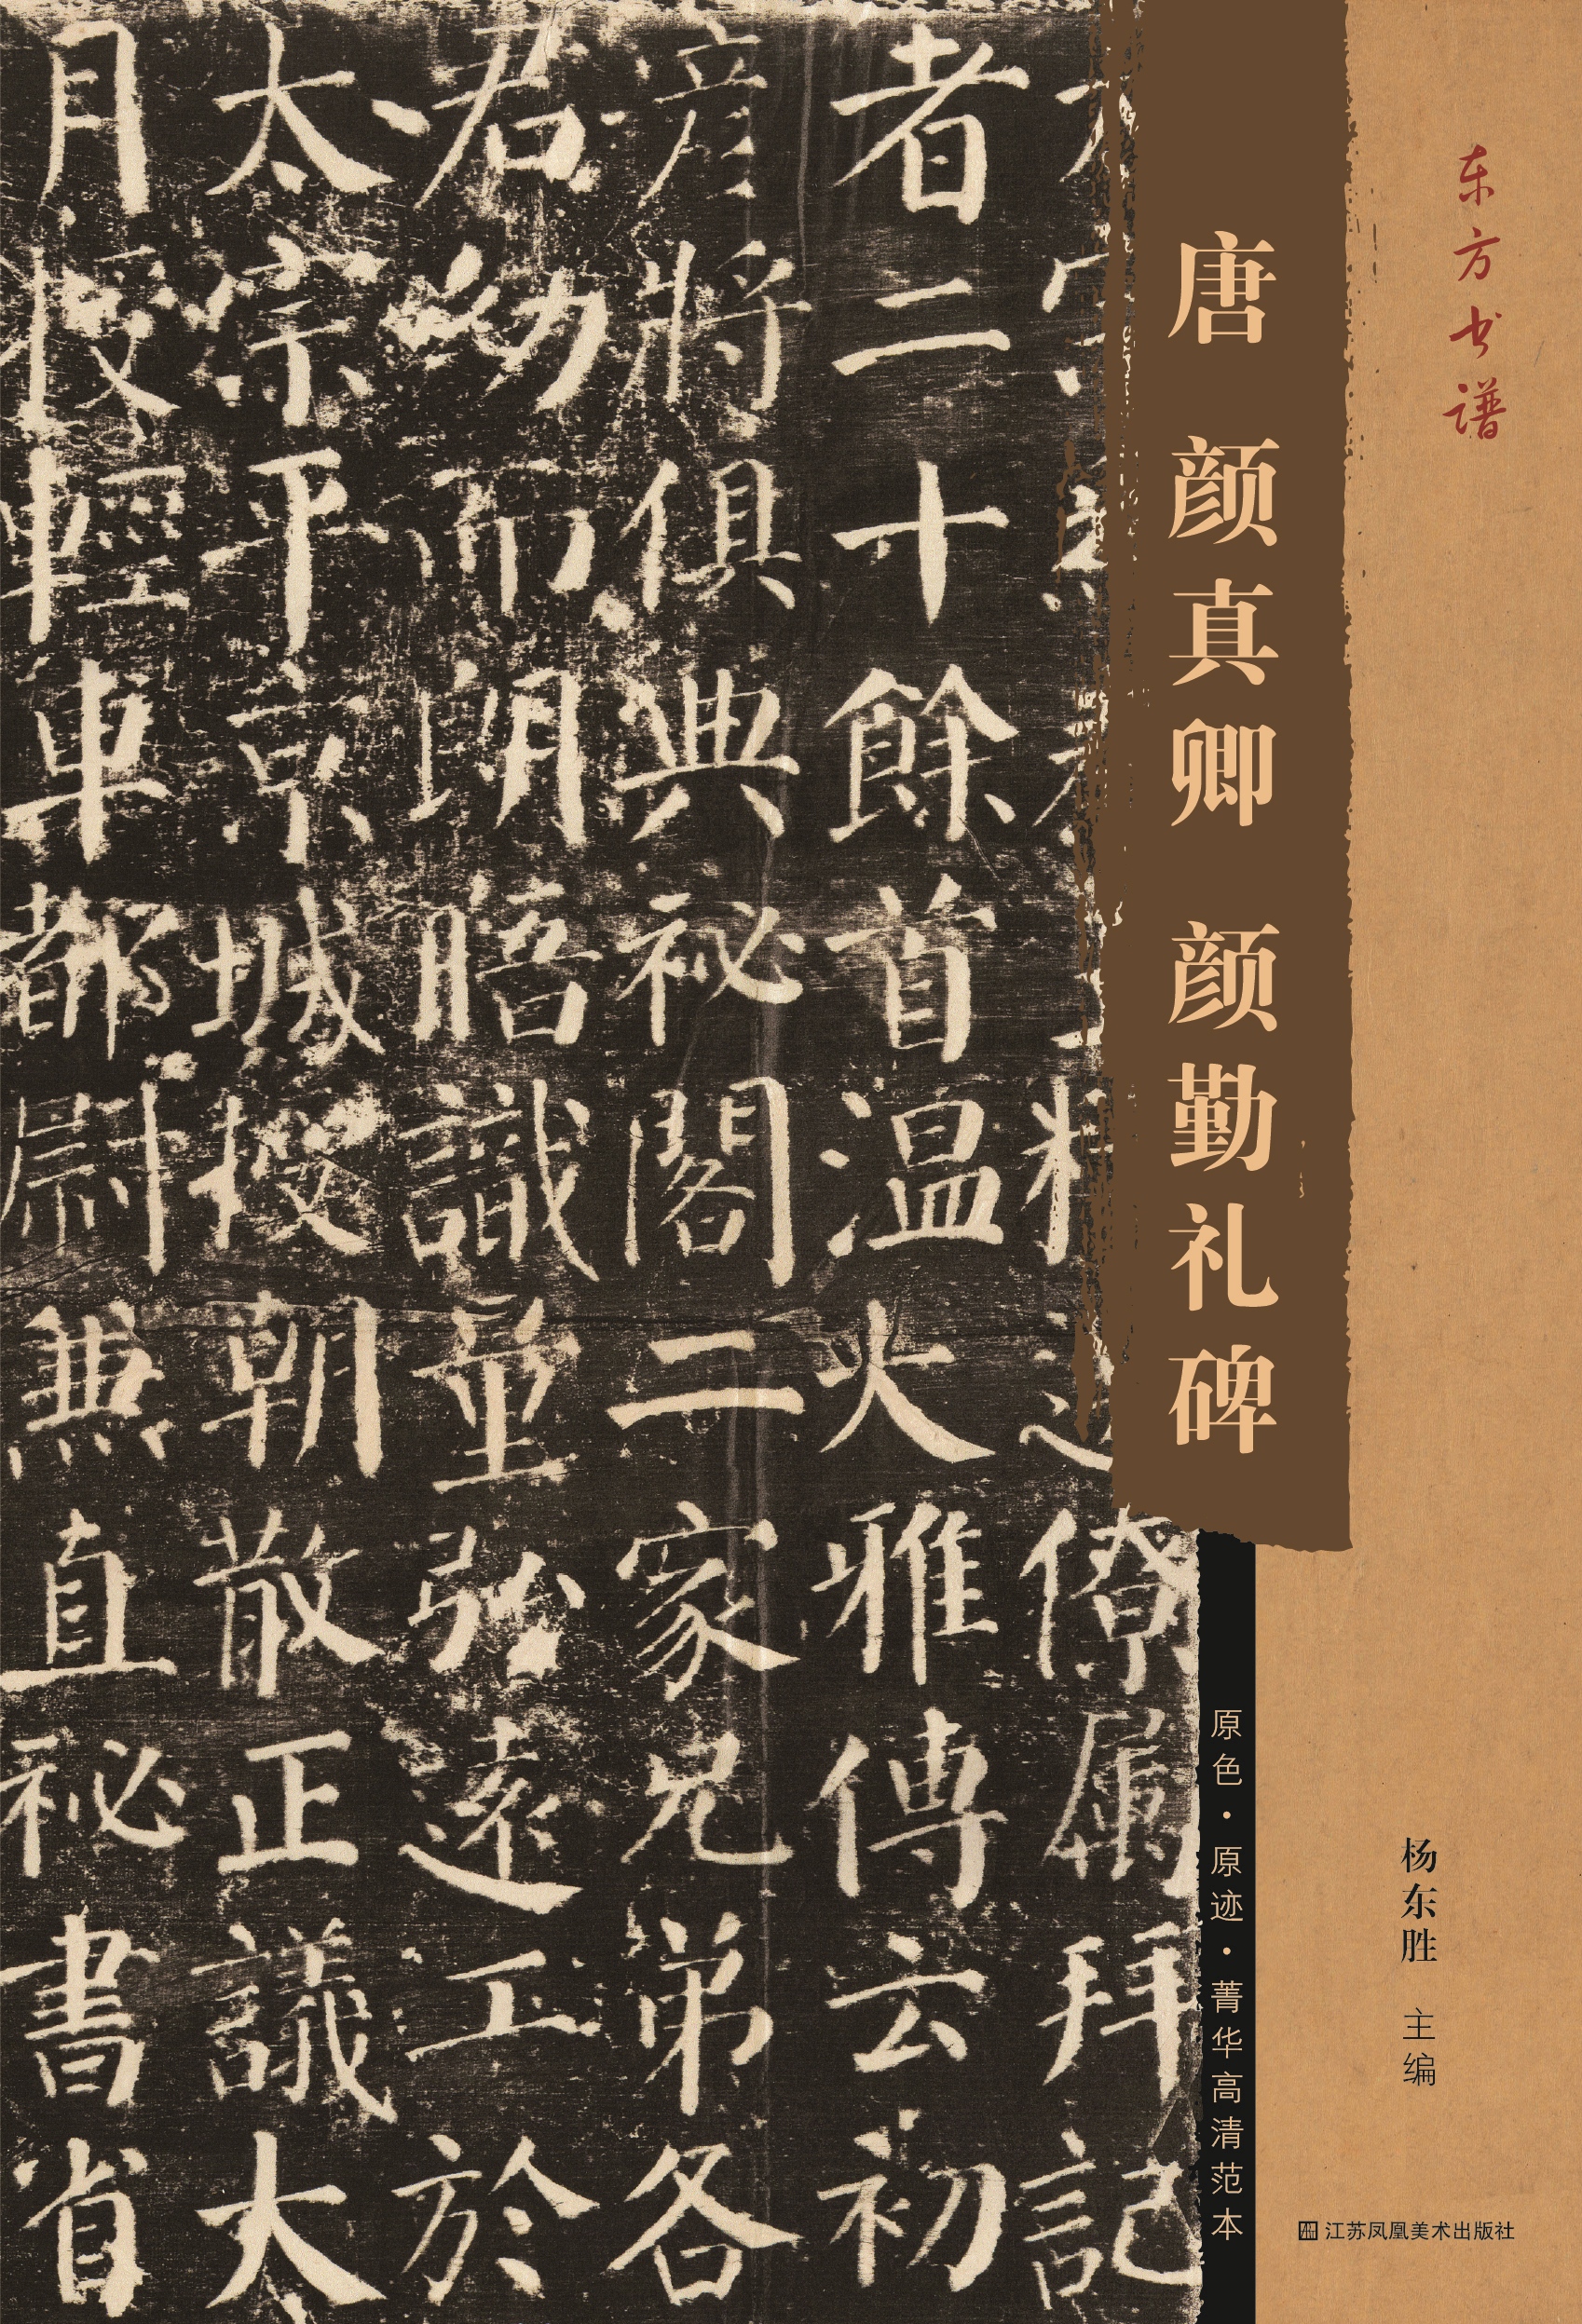 东方书谱
唐 颜真卿 颜勤礼碑
杨东胜 主编
江苏凤凰美术出版社
原色・原迹・菁华高清范本
僚属拜記
者二十餘首温大雅傳云初
彦將俱典祕閣二家兄弟各
君幼而朗晤識量弘遠工於
太宗平京城授朝散正議大
月授輕車都尉兼直祕書省